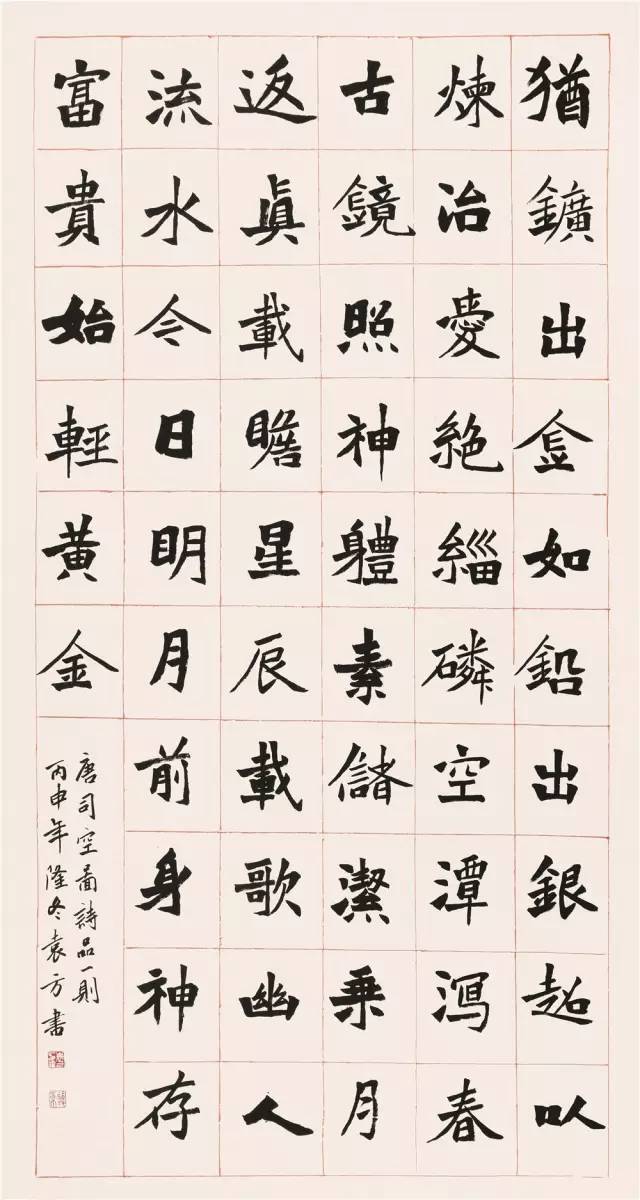 猶鑛出金如鉛出銀超以
煉冶愛絶緇磷空潭瀉春
古鏡照神體素儲潔乗月
返眞載瞻星辰載歌幽人
流水今日明月前身神存
富貴始輕黄金
唐司空圖詩品一則
丙申年隆冬袁方書